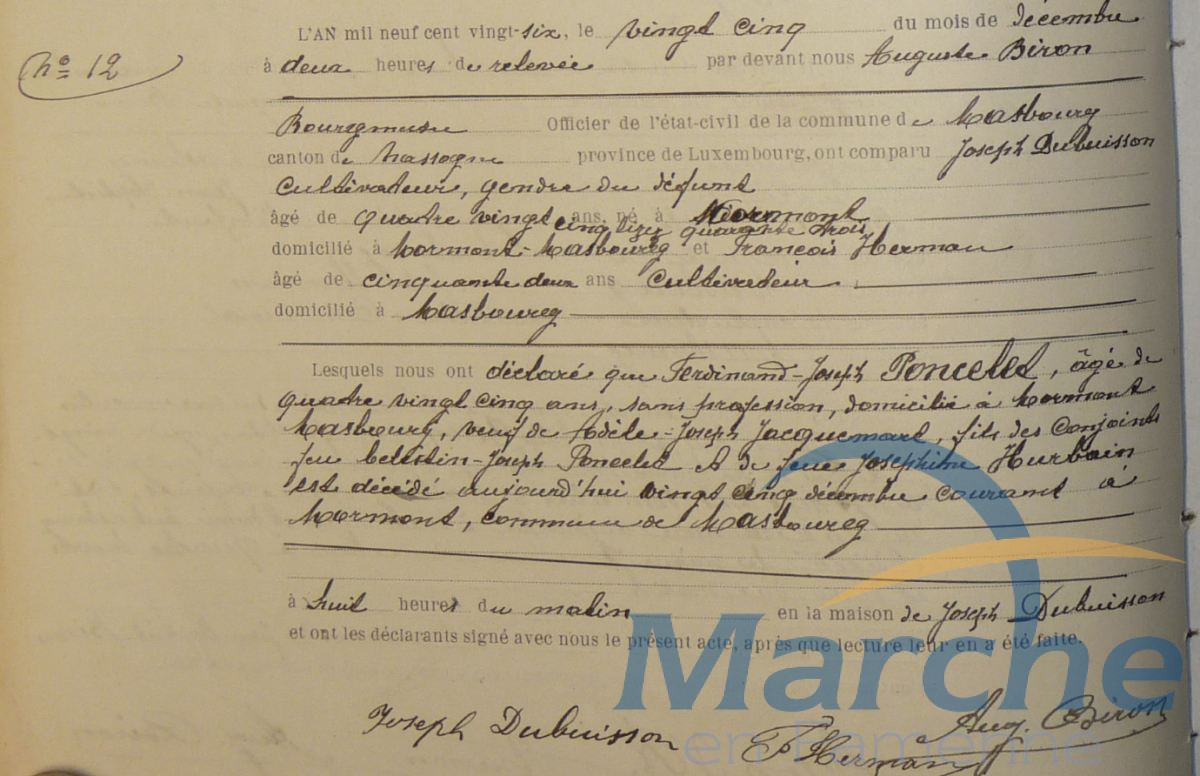 L'AN mil neuf cent vingt-six, le vingt cinq du mois de décembre
No 12
à deux heures de relevée par devant nous Auguste Biron
Bourgmestre Officier de l'état-civil de la commune de Masbourg
canton de Nassogne province de Luxembourg, ont comparu Joseph Dubuisson
Cultivateur, gendre du défunt
âgé de quatre vingt ans, né à Mormont
cinq quarante trois
domicilié à Mormont-Masbourg et François Herman
âgé de cinquante deux ans Cultivateur
domicilié à Masbourg
Lesquels nous ont déclaré que Ferdinand-Joseph Poncelet, âgé de
quatre vingt cinq ans, sans profession, domicilié à Mormont
Masbourg, veuf de Adèle-Joseph Jacquemart, fils des Conjoints
feu Celestin-Joseph Poncelet & de feue Josephine Hurbain
est décédé aujourd'hui vingt cinq décembre courant à
Mormont, commune de Masbourg
à huit heures du matin en la maison de Joseph Dubuisson
et ont les déclarants signé avec nous le présent acte, après que lecture leur en a été faite.
Marche
en Famenne
Joseph Dubuisson F Herman Aug. Biron